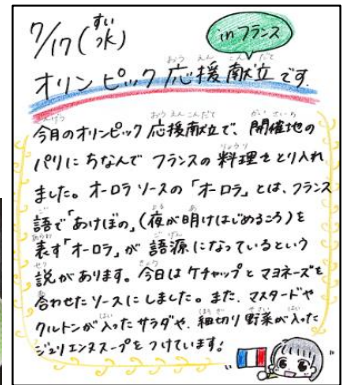 7/17(水)
すい
in フランス
オリンピック応援献立です
おうえんこんだて
今月のオリンピック応援献立で、開催地の
パリにちなんでフランスの料理をとり入れ
ました。オーロラソースの「オーロラ」とは、フランス
語で「あけぼの」(夜が明けはじめるころ)を
表す「オーロラ」が語源になっているという
説があります。今日はケチャップとマヨネーズを
合わせたソースにしました。また、マスタードや
クルトンが入ったサラダや、細切り野菜が入った
ジュリエンヌスープをつけています!